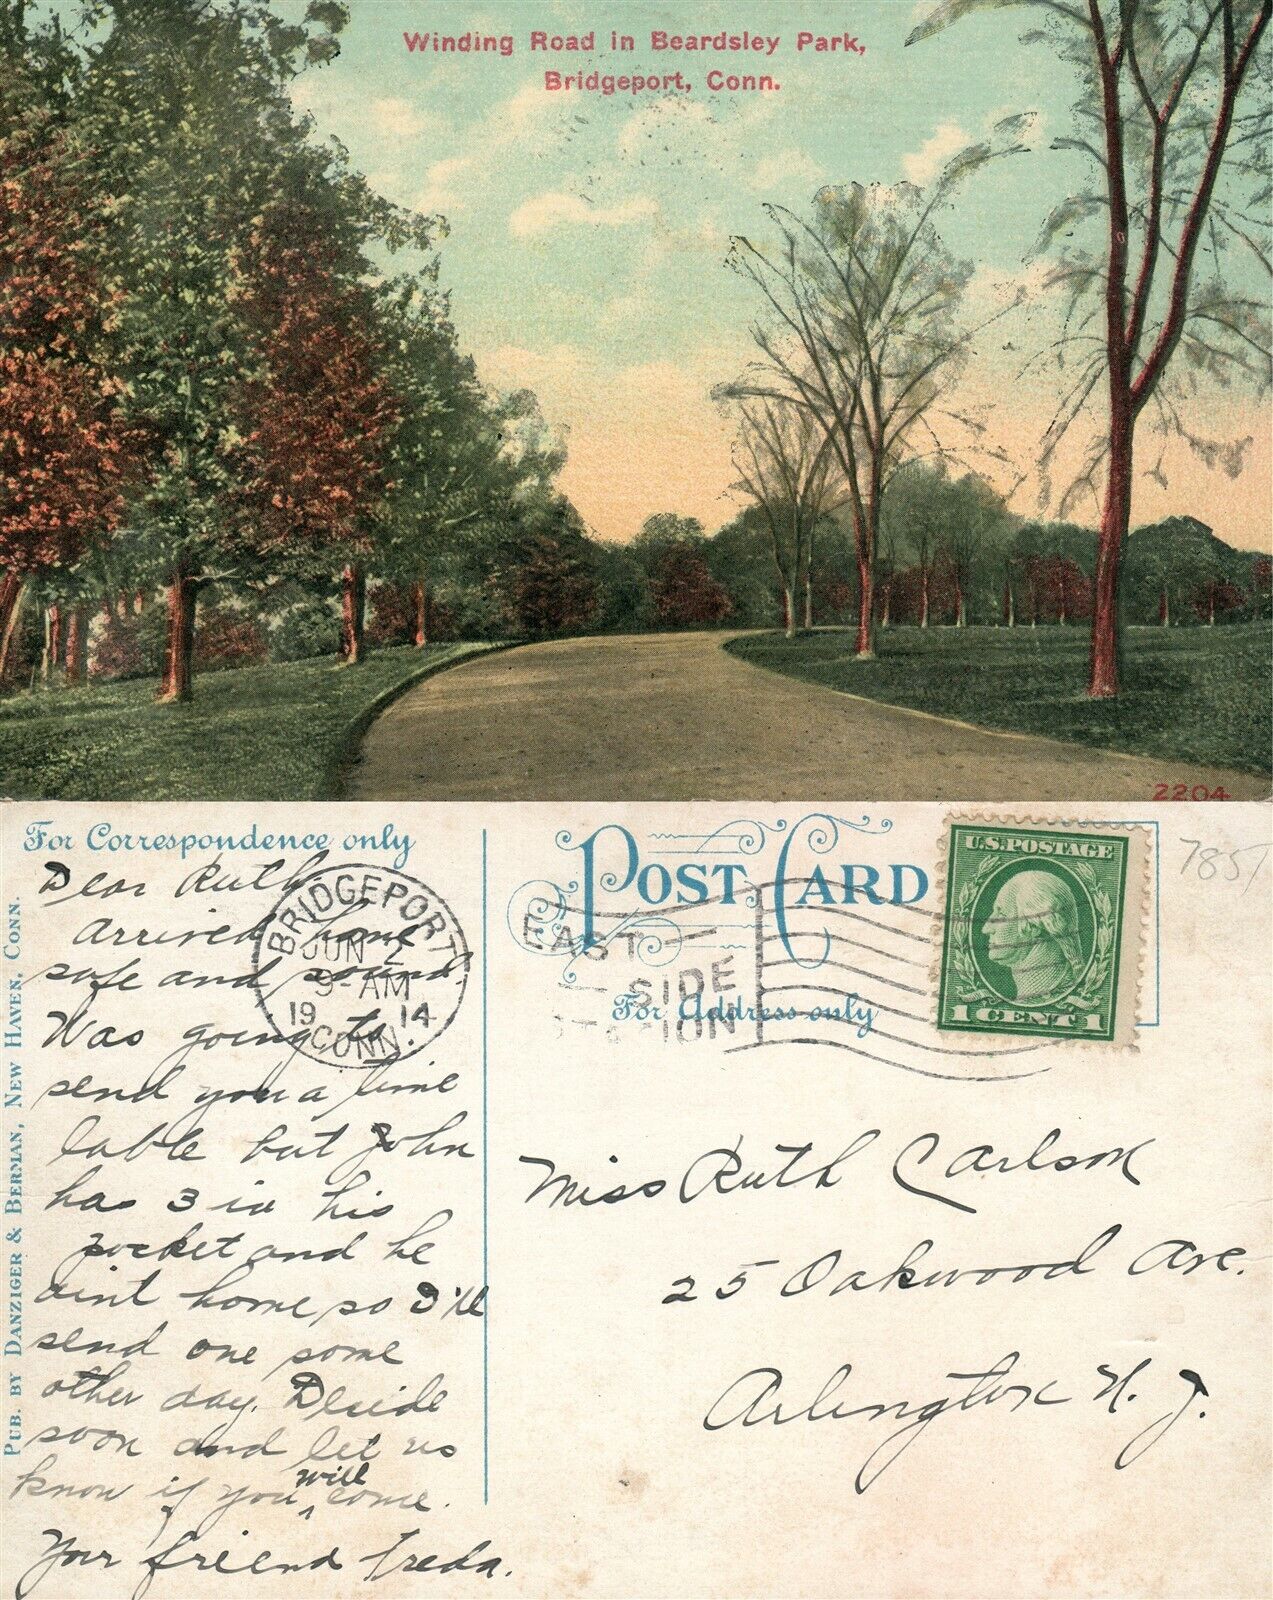 Winding Road in Beardsley Park,
Bridgeport, Conn.
2204
For Correspondence only
POST CARD
For Address only
PUB. BY DANZIGER & BERMAN, NEW HAVEN, CONN.
BRIDGEPORT
JUN 2
9-AM
1914
CONN.
EAST
SIDE
STATION
U.S. POSTAGE
1 CENT 1
7857
Dear Ruth.
Arrived home
safe and sound.
Was going to
send you a time
table but John
has 3 in his
pocket and he
aint home so I'll
send one some
other day. Decide
soon and let us
know if you will come.
Your friend Freda.
Miss Ruth Carlson
25 Oakwood Ave.
Arlington N. J.